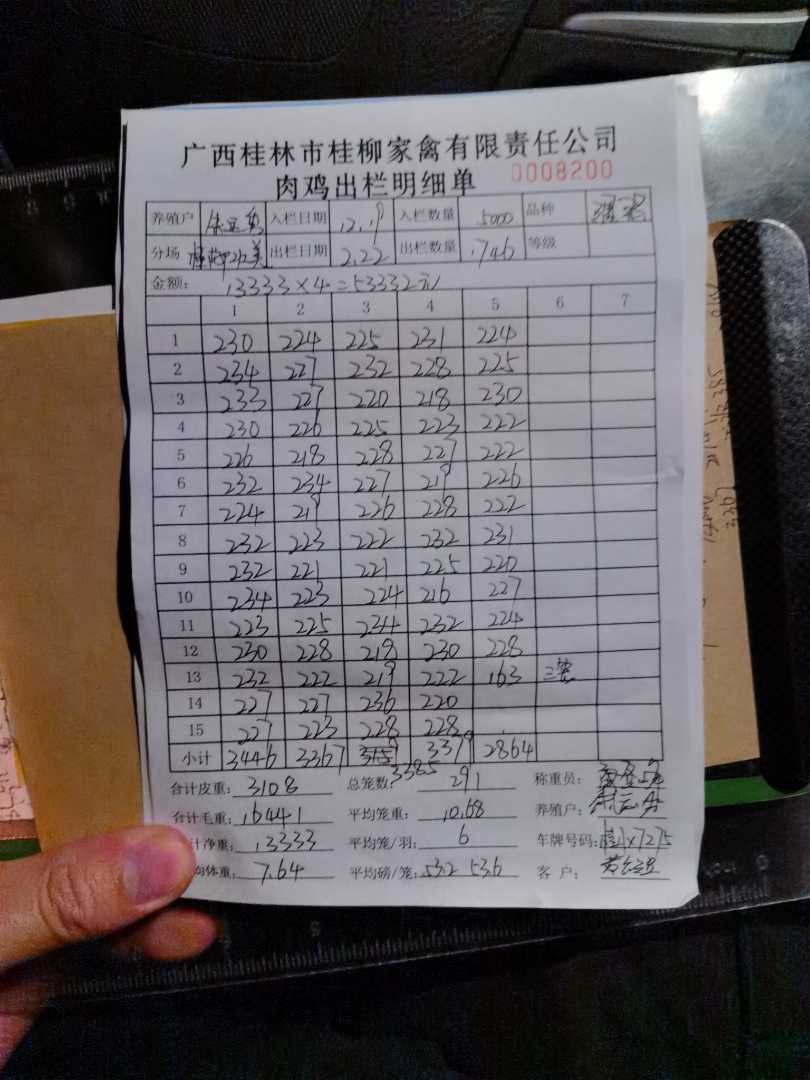 广西桂林市桂柳家禽有限责任公司
肉鸡出栏明细单 0008200
养殖户 入栏日期 12.19 入栏数量 5000 品种
分场 出栏日期 2.22 出栏数量 1746 等级
金额: 13333×4=53332元
1 2 3 4 5 6 7
1 230 224 225 231 224
2 234 227 232 228 225
3 233 227 220 218 230
4 230 226 225 223 222
5 226 218 228 227 222
6 232 234 227 219 226
7 224 219 226 228 222
8 232 223 222 232 231
9 232 221 221 225 220
10 234 223 224 216 227
11 223 225 234 232 224
12 230 228 218 230 228
13 232 222 219 222 163 三笼
14 227 227 236 220
15 227 223 228 228
小计 3446 3367 3379 2864
3385
合计皮重: 3108 总笼数: 291 称重员:
合计毛重: 16441 平均笼重: 10.68 养殖户:
计净重: 13333 平均笼/羽: 6 车牌号码: X7275
均体重: 7.64 平均磅/笼: 53.2 53.6 客户: